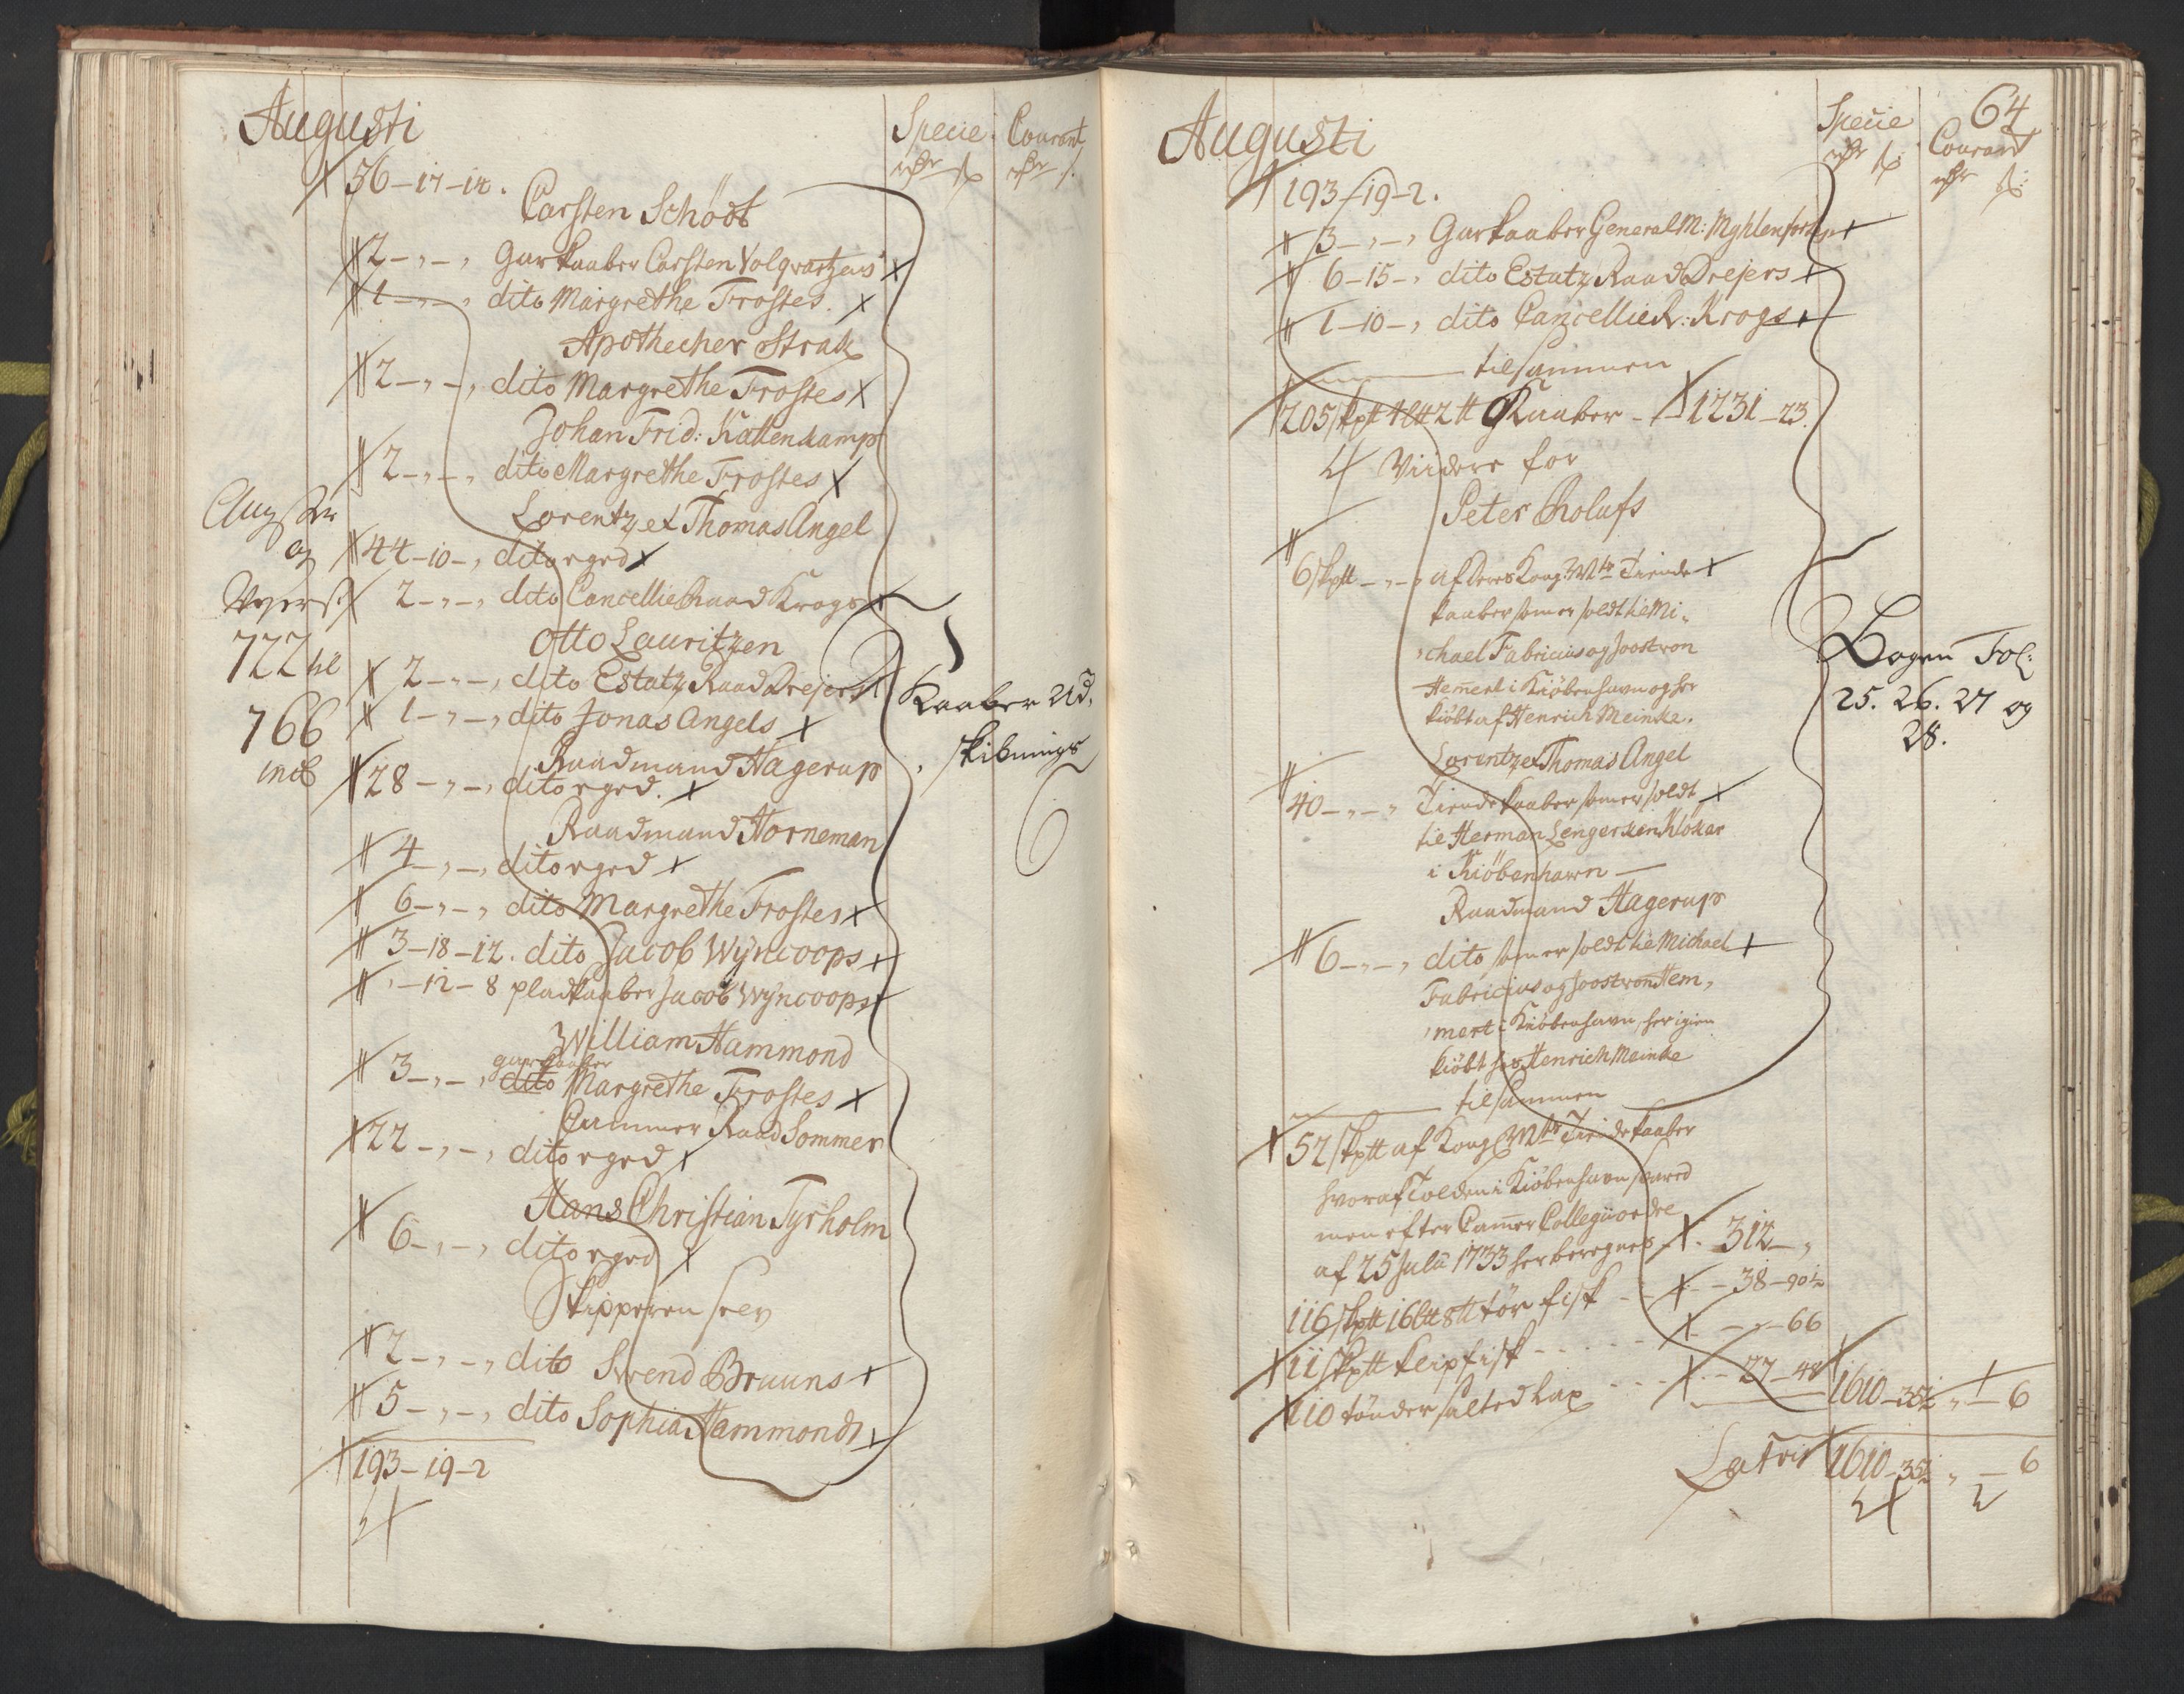 Augusti
Specie Courant
rdr ß rdr ß
56-17-12.
Carsten Schödt
2-,-, Gurkaaber Carsten Volqvartzens
1-,-, dito Margrethe Frostes.
Apothecher Strah
2-,-, dito Margrethe Frostes
Johan Frid: Kattenkamp
2-,-, dito Margrethe Frostes
Lorentz et Thomas Angel
44-10-, dito eged
2-,-, dito Cancellie Raad Krogs
Otto Lauritzen
2-,-, dito Estatz Raad Drejers
1-,-, dito Jonas Angels
Raadmand Hagerup
28-,-, dito eged.
Raadmand Horneman
4-,-, dito eged
6-,-, dito Margrethe Frostes
3-18-12. dito Jacob Wijncoops
,-12-8 pladkaaber Jacob Wijncoops
William Hammond
gurkaaber
3-,-, dito Margrethe Frostes
Cammer Raad Sommer
22-,-, dito eged
Hans Christian Tyrholm
6-,-, dito eged
Skipperen selv
2-,-, dito Svend Bruuns
5-,-, dito Sophia Hammonds
193-19-2
og
722 til
766
incl
Kaaber Ud,
, skibnings
64
Augusti
Specie Courant
rdr ß rdr ß
193-19-2.
3-,-, Gurkaaber General M:
6-15-, dito Estatz Raad Drejers
1-10-, dito Cancellie R: Krogs
tilsammen
205 skp# 4 L# 2 # Kaaber - 1231-23.
Viidere for
Peter Rolufs
6 skp# -,-, af Deres Kong: Mts Tiende
kaaber som er soldt til Mi,
,chael Fabricius og Joost von
Hemert i Kiöbenhavn og her
kiöbt af Henrich Meinke.
Lorentz et Thomas Angel
40-,-, Tiende kaaber som er soldt
til Herman Lengerken Klöker
i Kiöbenhavn
Raadmand Hagerup
6-,-, dito som er soldt til Michael
Fabricius og Joost von Hem,
,mert i Kiöbenhavn, her igien
kiöbt hos Henrich Meinke
tilsammen
52 skp# af Kong: Mts Tiende kaaber
hvoraf Tolden i Kiöbenhavn svared
men efter Camer Collegii ordre
af 25 Julii 1733 her beregnes 312-,
116 skp# 16 L# 8 # tör fisk - 38-90½
11 skp# klipfisk - - - - - -,-66
110 tönder salted Lax - - - - 27-48 1610-35½ ,-6
Latris 1610-35½ ,-6
Bogen Fol:
25. 26. 27 og
28.